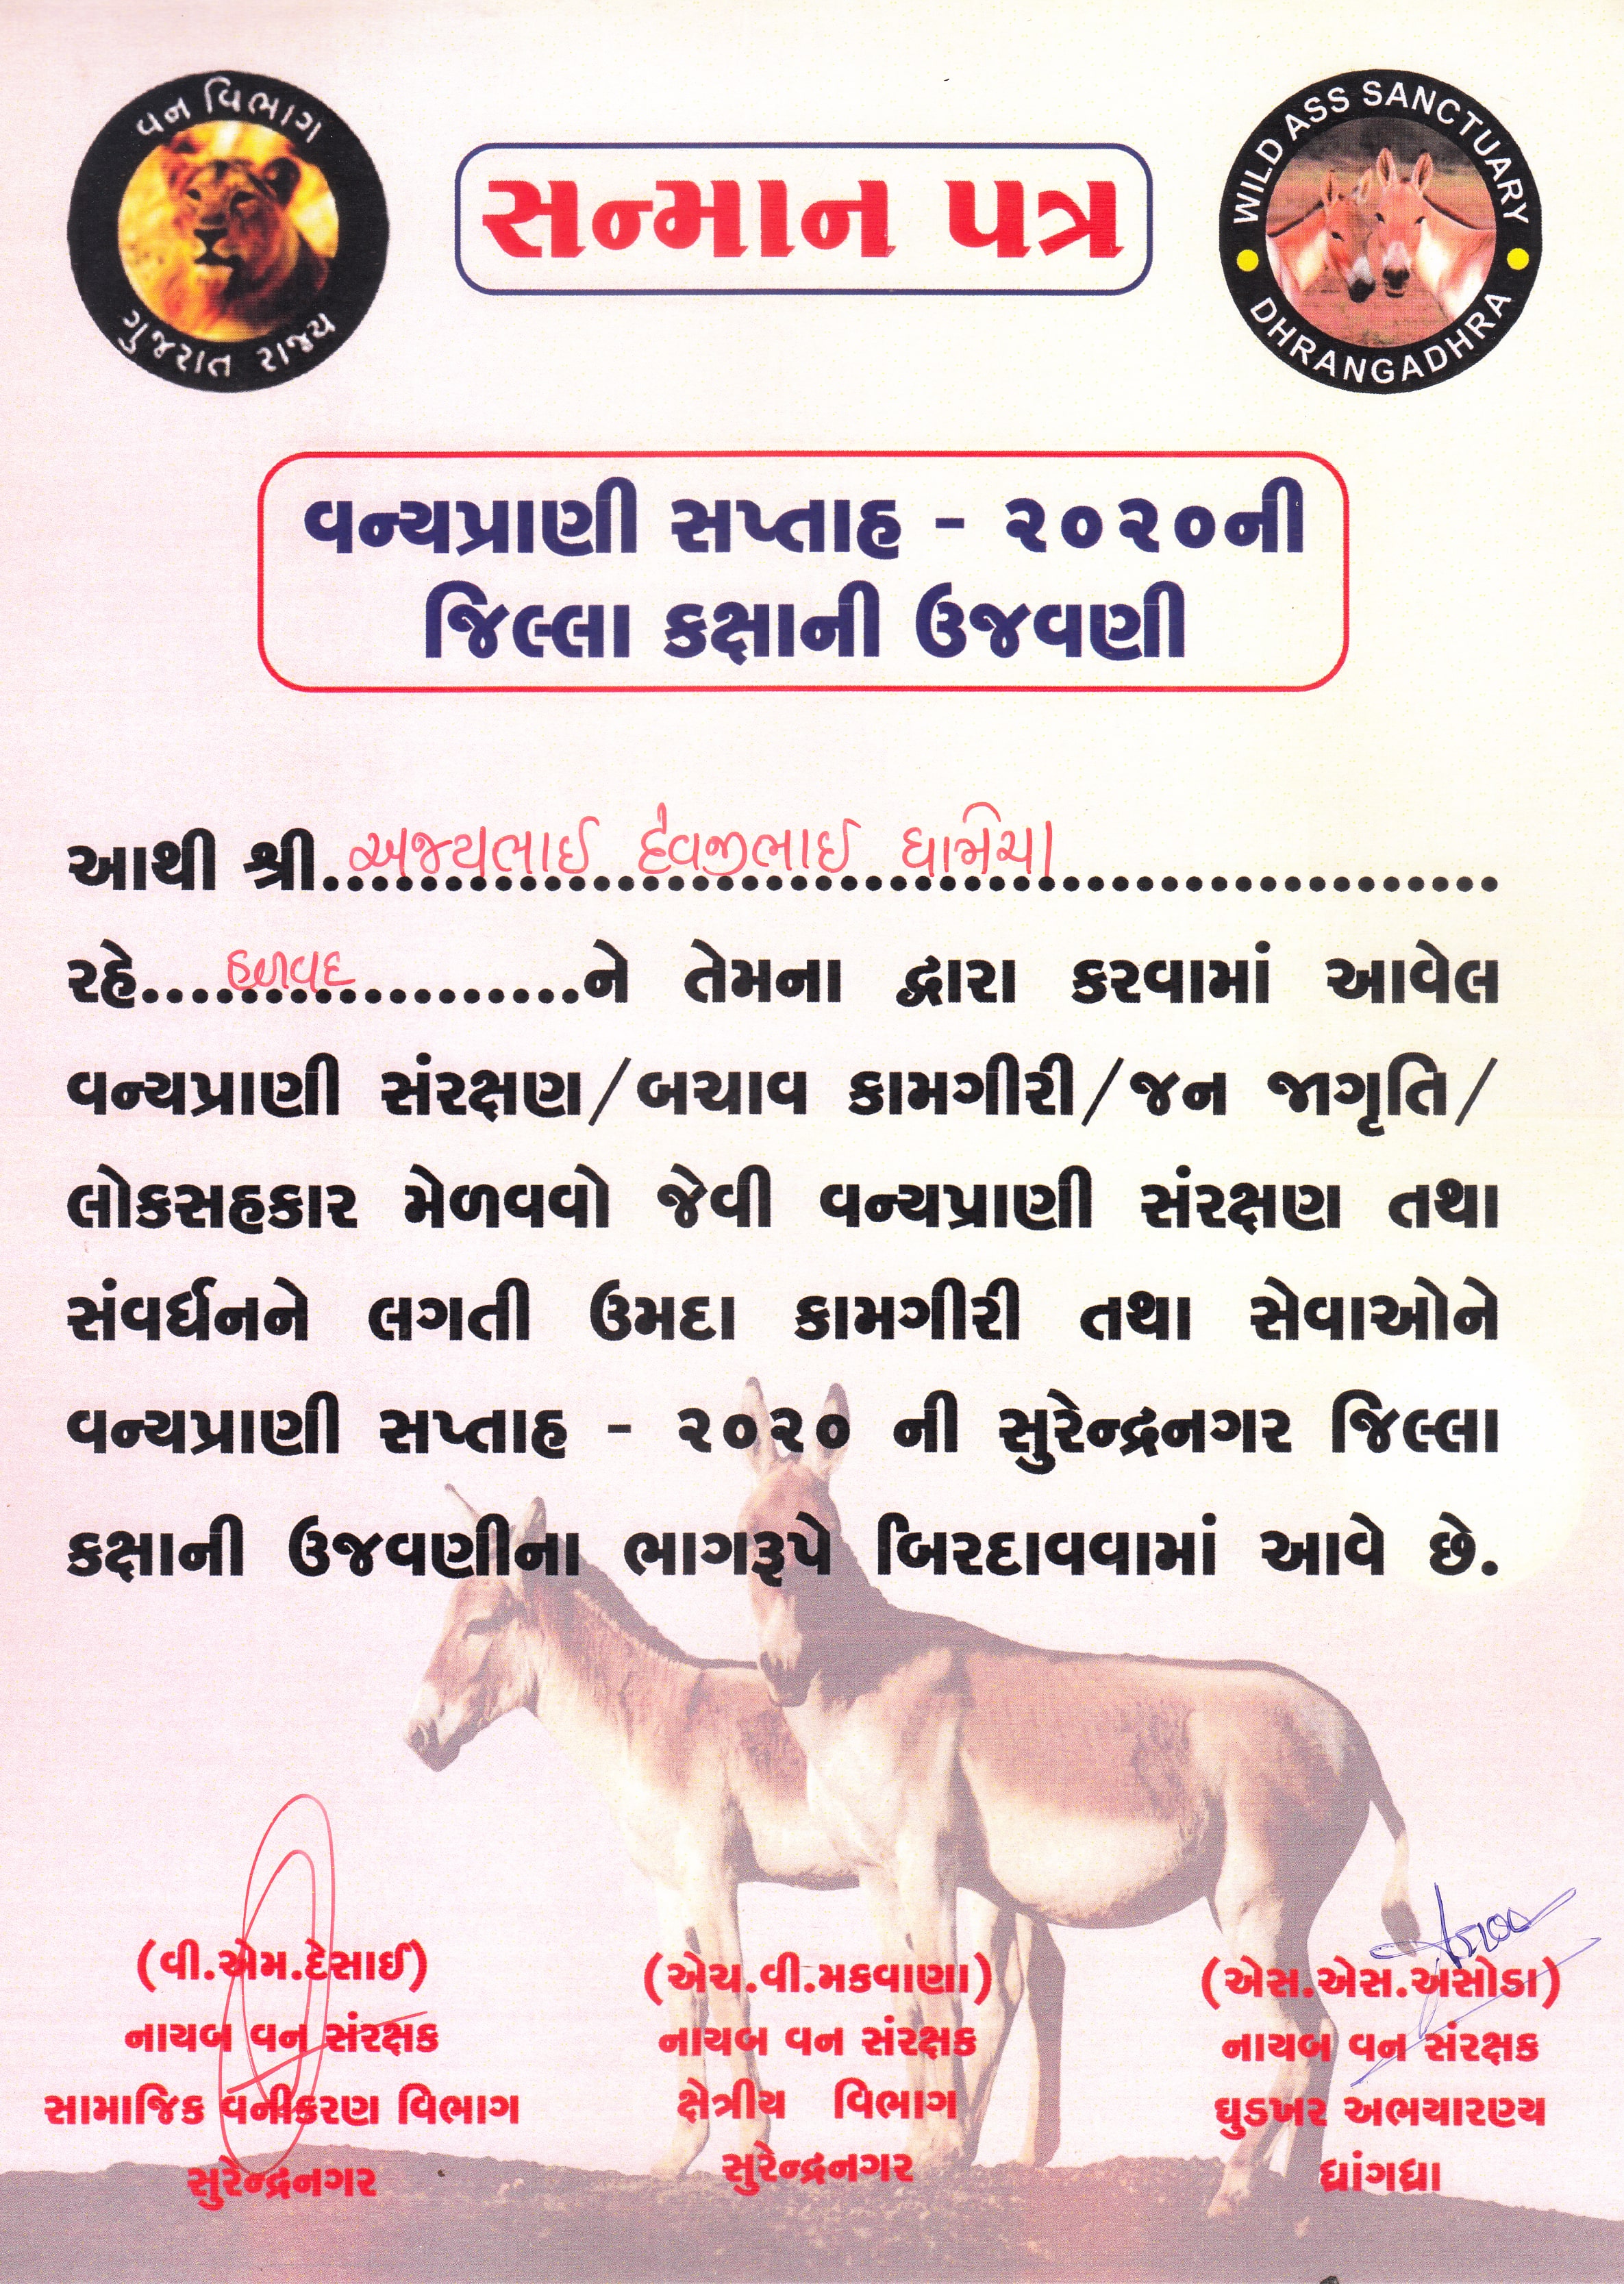 વન વિભાગ
ગુજરાત રાજ્ય
સન્માન પત્ર
WILD ASS SANCTUARY
DHRANGADHRA
વન્યપ્રાણી સપ્તાહ - ૨૦૨૦ની
જિલ્લા કક્ષાની ઉજવણી
આથી શ્રી અજયભાઈ દેવજીભાઈ ધામેચા
રહે. હળવદ ને તેમના દ્વારા કરવામાં આવેલ
વન્યપ્રાણી સંરક્ષણ/બચાવ કામગીરી/જન જાગૃતિ/
લોકસહકાર મેળવવો જેવી વન્યપ્રાણી સંરક્ષણ તથા
સંવર્ધનને લગતી ઉમદા કામગીરી તથા સેવાઓને
વન્યપ્રાણી સપ્તાહ - ૨૦૨૦ ની સુરેન્દ્રનગર જિલ્લા
કક્ષાની ઉજવણીના ભાગરૂપે બિરદાવવામાં આવે છે.
(વી.એમ.દેસાઈ)
નાયબ વન સંરક્ષક
સામાજિક વનીકરણ વિભાગ
સુરેન્દ્રનગર
(એચ.વી.મકવાણા)
નાયબ વન સંરક્ષક
ક્ષેત્રીય વિભાગ
સુરેન્દ્રનગર
(એસ.એસ.અસોડા)
નાયબ વન સંરક્ષક
ઘુડખર અભયારણ્ય
ધ્રાંગધ્રા